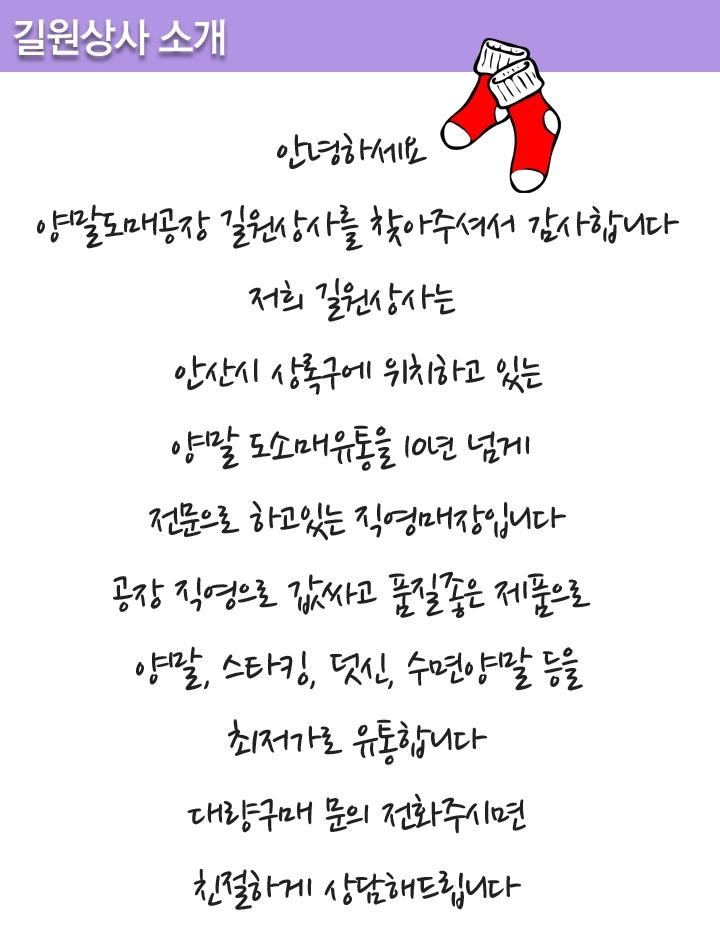 길원상사 소개
안녕하세요
양말도매공장 길원상사를 찾아주셔서 감사합니다
저희 길원상사는
안산시 상록구에 위치하고 있는
양말 도소매유통을 10년 넘게
전문으로 하고있는 직영매장입니다
공장 직영으로 값싸고 품질좋은 제품으로
양말, 스타킹, 덧신, 수면양말 등을
최저가로 유통합니다
대량구매 문의 전화주시면
친절하게 상담해드립니다